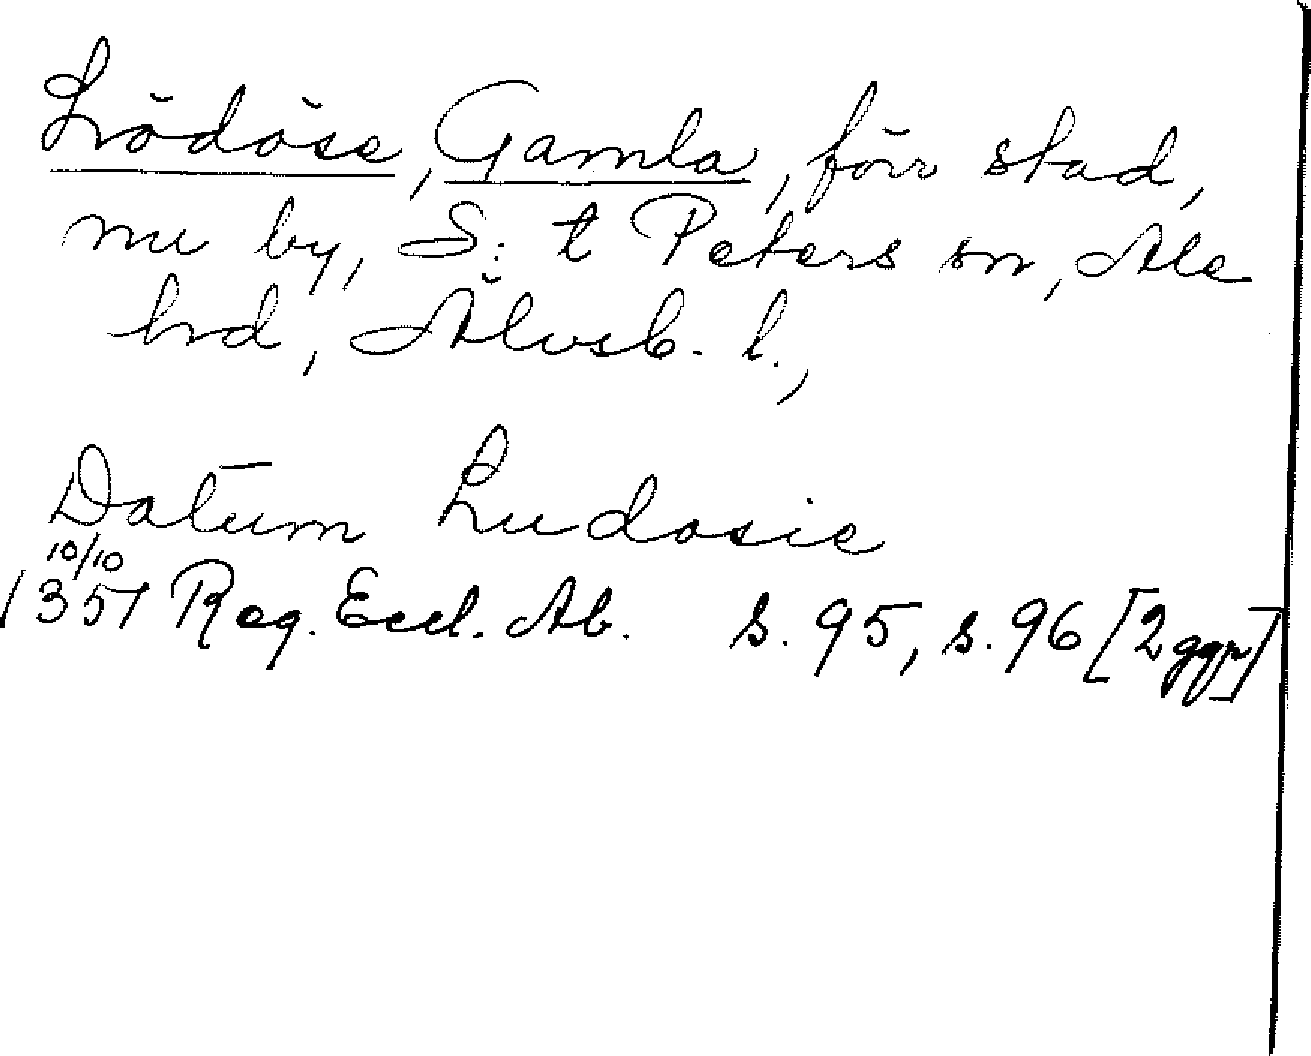 Lödöse, Gamla, förr stad,
nu by, S:t Peters sn, Ale
hd, Älvsb. l.,
Datum Ludosie
10/10
1351 Reg. Eccl. Ab. s. 95, s. 96 [2 ggr]